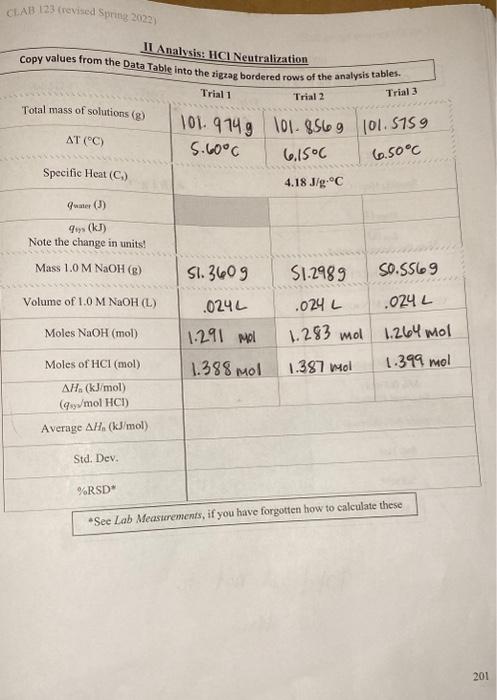 CLAB 123 (revised Spring 2022)
II Analysis: HCl Neutralization
Copy values from the Data Table into the zigzag bordered rows of the analysis tables.
Trial 1 Trial 2 Trial 3
Total mass of solutions (g) 101.974g 101.856g 101.575g
ΔT (°C) 5.60°C 6.15°C 6.50°C
Specific Heat (Cs) 4.18 J/g·°C
qwater (J)
qsys (kJ)
Note the change in units!
Mass 1.0 M NaOH (g) 51.360g 51.298g 50.556g
Volume of 1.0 M NaOH (L) .024L .024 L .024 L
Moles NaOH (mol) 1.291 mol 1.283 mol 1.264 mol
Moles of HCl (mol) 1.388 mol 1.387 mol 1.399 mol
ΔHn (kJ/mol)
(qsys/mol HCl)
Average ΔHn (kJ/mol)
Std. Dev.
%RSD*
*See Lab Measurements, if you have forgotten how to calculate these
201